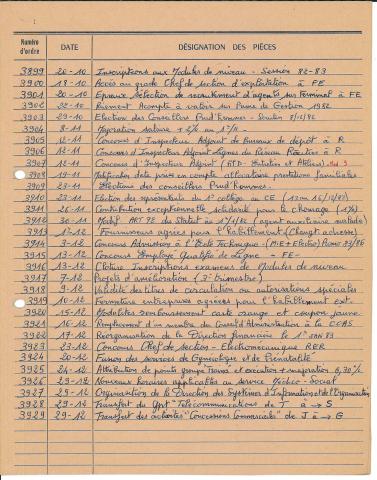 Numéro d'ordre DATE DÉSIGNATION DES PIÈCES
3899 20-10 Inscriptions aux Modules de niveau - Session 82-83
3900 18-10 Accès au grade Chef de section d'exploitation à FE
3901 20-10 Epreuve Sélection de recrutement d'agents sur Terminal à FE
3902 22-10 Paiement Acompte à valoir sur Prime de Gestion 1982
3903 29-10 Election des Conseillers Prud'Hommes - Scrutin 8/12/82
3904 8-11 Majoration salaire + 2% au 1°/11 -
3905 12-11 Concours d'Inspecteur Adjoint de Bureaux de dépôt à R
3906 12-11 Concours d'Inspecteur Adjoint Lignes du Réseau Routier à R
3907 12-11 Concours d'Inspecteur Adjoint (
3908 19-11 Modification date prise en compte allocataire prestations familiales
3909 23-11 Elections des conseillers Prud'Hommes.
3910 23-11 Election des représentants du 1° collège au CE
3911 26-11 Contribution exceptionnelle solidarité pour le chômage (1%)
3912 30-11 Modif ART 72 du Statut au 1°/1/82 (agent auxiliaire mutilé)
3913 1°-12 Fournisseurs agréés pour l'habillement (Changt adresse)
3914 3-12 Concours Admission à l'Ecole Technique - (M.E + Electro) Promo 83/86
3915 13-12 Concours Employé Qualifié de Ligne - FE -
3916 13-12 Cloture Inscriptions examens de Modules de niveau
3917 7-12 Projets d'amélioration (3° trimestre)
3918 9-12 Validité des titres de circulation ou autorisations spéciales
3919 10-12 Fermeture entreprises agréées pour l'habillement ext.
3920 15-12 Modalités remboursement carte orange et coupon jaune
3921 16-12 Remplacement d'un membre du Conseil d'Administration à la CCAS
3922 17-12 Réorganisation de la Direction Financière le 1° Jan 83
3923 23-12 Concours Chef de section - Electromécanique RER
3924 20-12 Fusion des services de Gynécologie et de Prénatalité
3925 24-12 Attribution de points groupe exécution + maîtrise 0,30%
3926 29-12 Nouveaux horaires applicables au service Médico-Social
3927 29-12 Organisation de la Direction des Systèmes d'Information et de l'Organisation
3928 29-12 Transfert du Gpt "Télécommunications" de T à S
3929 29-12 Transfert des activités "Concessions Commerciales" de J à G